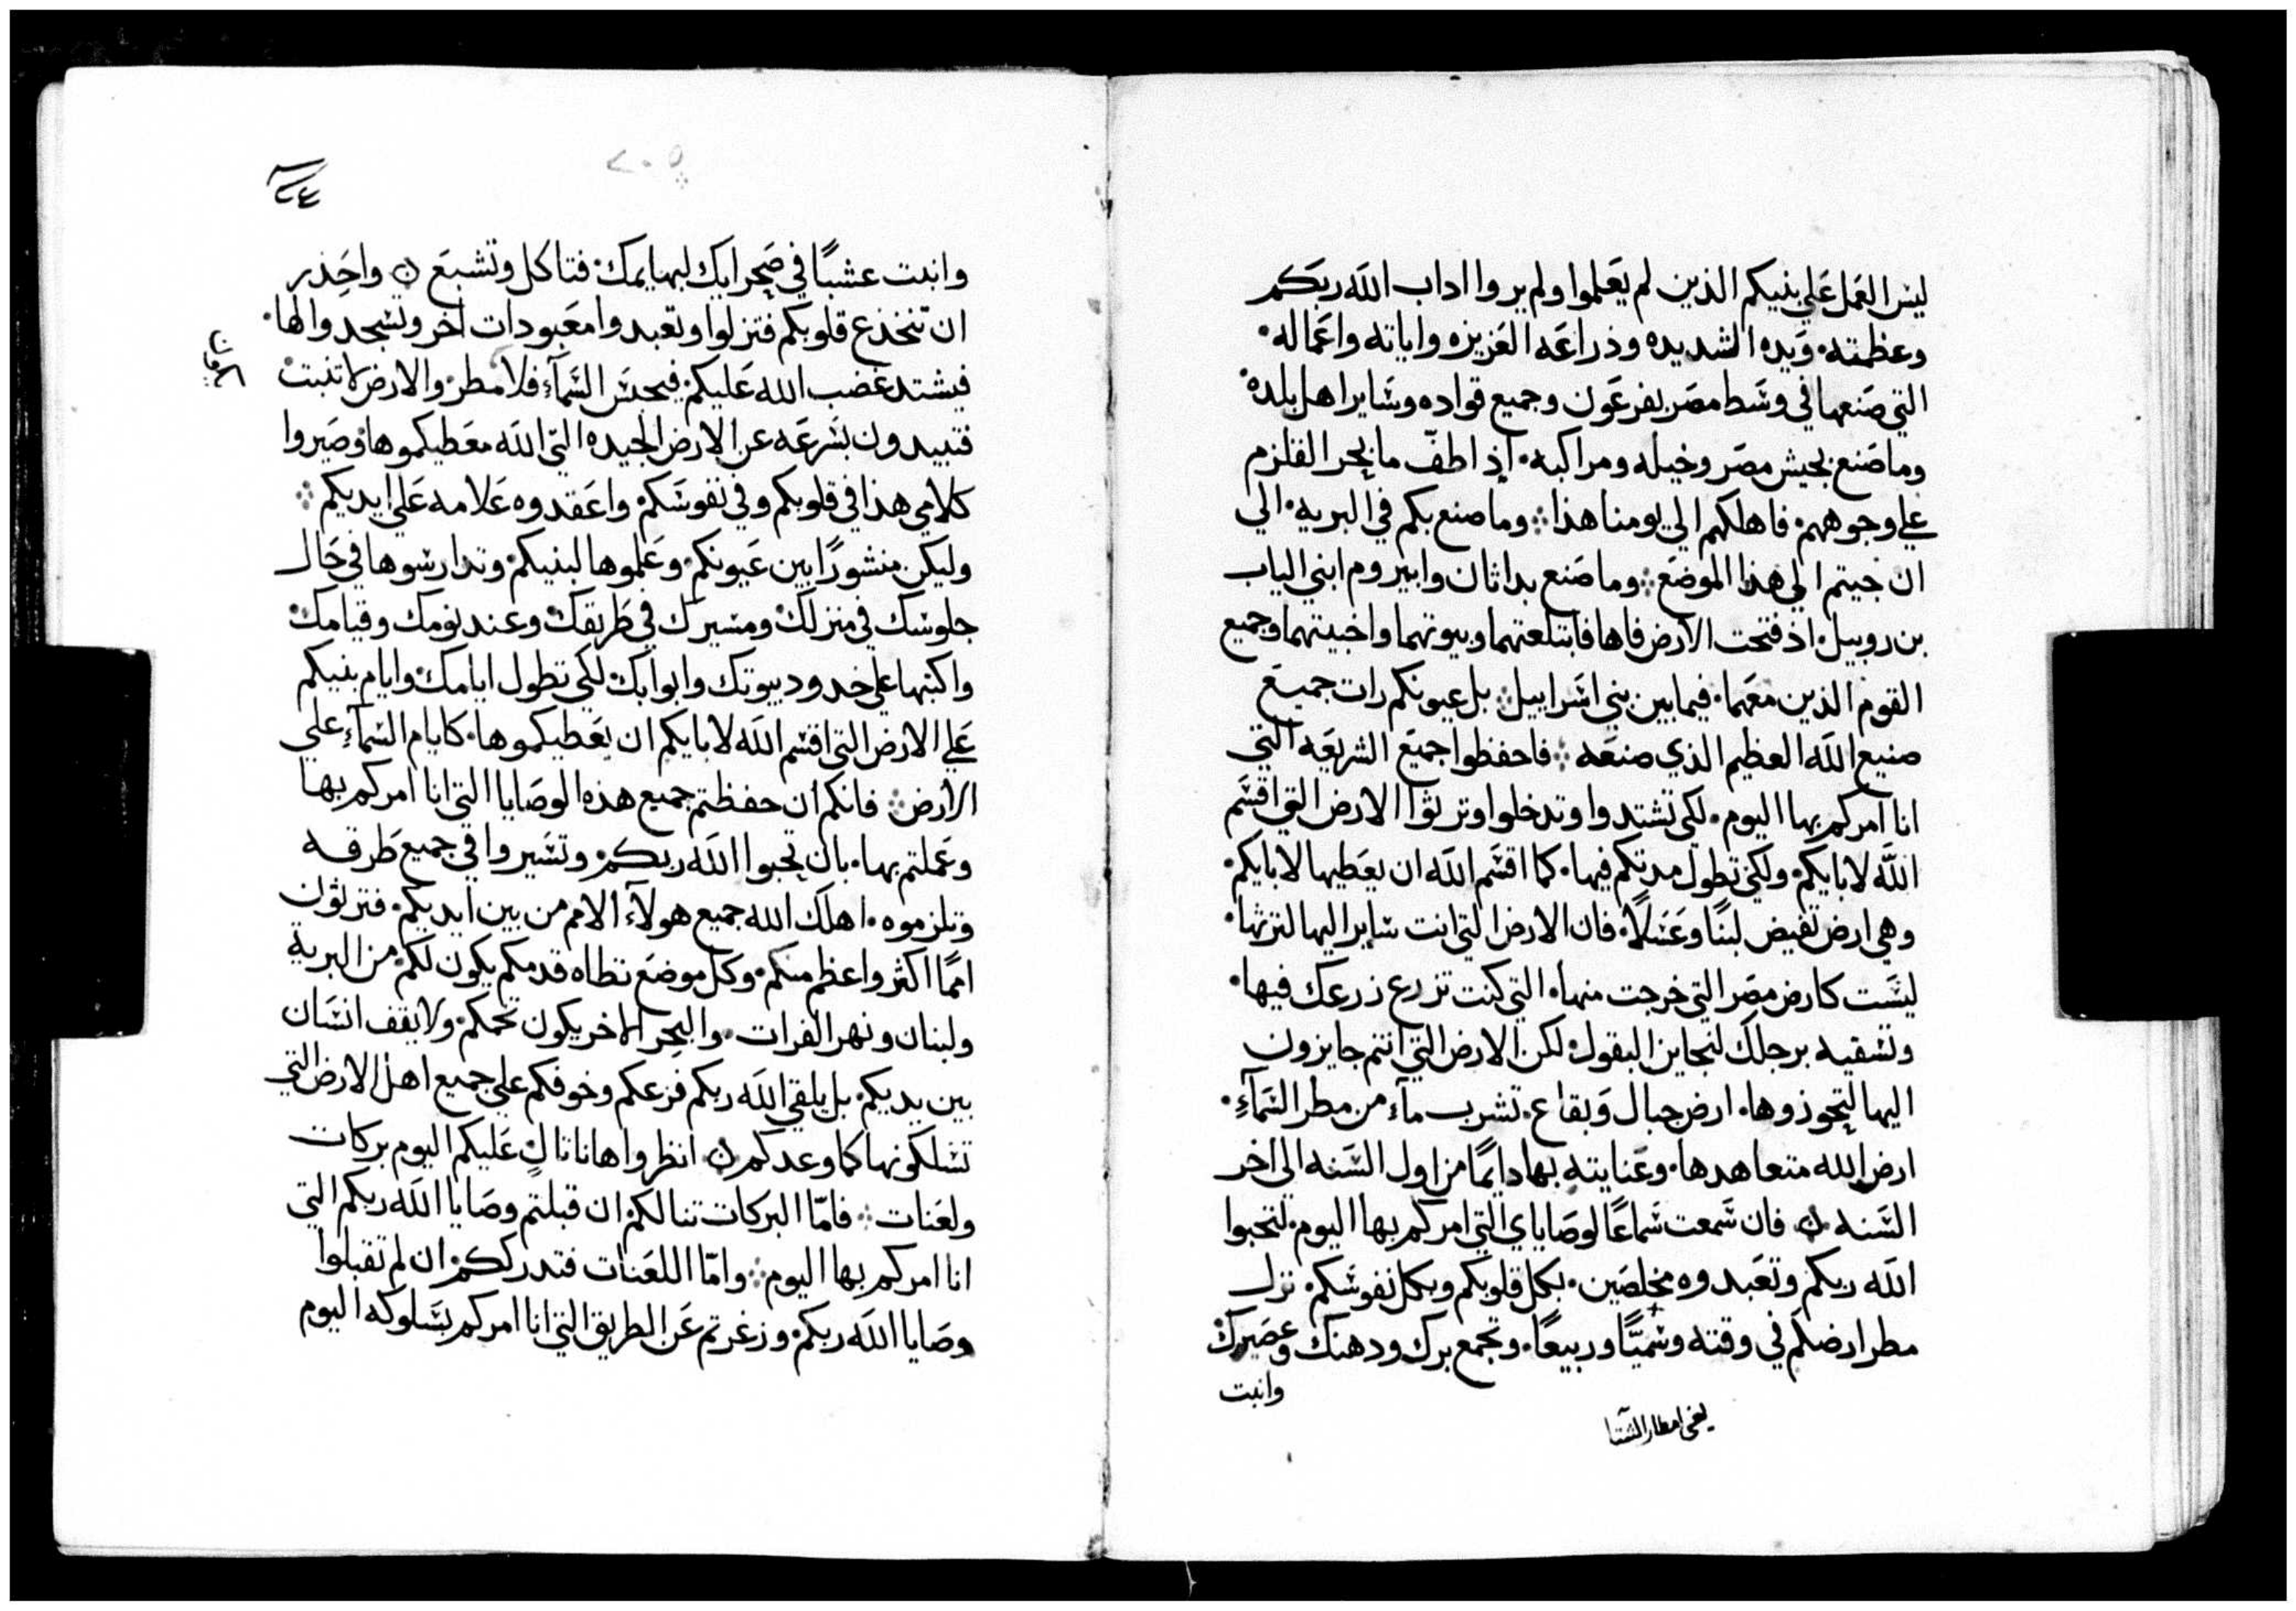 ليس العمل على بنيكم الذين لم يعلموا ولم يروا اداب الله ربكم
وعظمته. ويده الشديده وذراعه العزيزه واياته واعماله.
التي صنعها في وسط مصر بفرعون وجميع قواده وساير اهل بلده.
وما صنع بجيش مصر وخيله ومراكبه. إذ اطفّ ما بحر القلزم
علي وجوههم. فاهلكهم الي يومنا هذا ∴ وما صنع بكم في البريه. الي
ان جيتم الي هذا الموضع ∴ وما صنع بداثان وابيروم ابني الياب
بن روبيل. اذ فتحت الارض فاها فابتلعتهما وبيوتهما واخبيتهما وجميع
القوم الذين معهما. فيما بين بني اسراييل ∴ بل عيونكم رات جميع
صنيع الله العظيم الذي صنعه ∴ فاحفظوا جميع الشريعه التي
انا آمركم بها اليوم. لكي تشتدوا وتدخلوا وترثوا الارض التي اقسم
الله لابايكم. ولكي تطول مدتكم فيها. كما اقسم الله ان يعطيها لابايكم.
وهي ارض تفيض لبنًا وعسلًا. فان الارض التي انت ساير اليها لترثها.
ليست كارض مصر التي خرجت منها. التي كنت تزرع زرعك فيها.
وتسقيه برجلك لتجاين البقول. لكن الارض التي انتم جايزون
اليها لتجوزوها. ارض جبال وبقاع. تشرب مآء من مطر السمآءِ.
ارض الله متعاهدها. وعنايته بها دايمًا من اول السنه الي اخر
السنه ن فان سمعت سماعًا لوصاياي التي امركم بها اليوم. لتحبوا
الله ربكم وتعبدوه مخلصين. بكل قلوبكم وبكل نفوسكم. نزل
مطر ارضكم في وقته وسميًّا وربيعًا. وتجمع برك ودهنك وعصيرك.
وانبت
يعني امطار الشتا
٢٠٥
٢٤
وانبت عشبًا في صحرايك لبهايمك. فتاكل وتشبع ن واحذر
ان تنخدع قلوبكم فتزلوا وتعبدوا معبودات اخر وتسجدوا لها.
فيشتد غضب الله عليكم. فيحبس السمآء فلا مطر. والارض لا تنبت.
فتبيدون بسرعه عن الارض الجيده التي الله معطيكموها. وصيروا
كلامي هذا في قلوبكم وفي نفوسكم. واعقدوه علامه علي ايديكم ∴
وليكن منشورًا بين عيونكم. وعلموها لبنيكم. وتدارسوها في حال
جلوسك في منزلك. ومسيرك في طريقك. وعند نومك وقيامك.
واكتبها علي خدود بيوتك وابوابك. لكي تطول ايامك. وايام بنيكم
علي الارض التي اقسم الله لابايكم ان يعطيكموها. كايام السمآءِ علي
الارض ∴ فانكم ان حفظتم جميع هذه الوصايا التي انا امركم بها
وعملتم بها. بان تحبوا الله ربكم. وتسيروا في جميع طرقه
وتلزموه. اهلك الله جميع هولآء الامم من بين ايديكم. فترثون
اممًا اكثر واعظم منكم. وكل موضع تطاه قدمكم يكون لكم. من البرية
ولبنان ونهر الفرات. والبحر الاخر يكون تخمكم. ولا يقف انسان
بين يديكم. بل يلقي الله ربكم فزعكم وخوفكم علي جميع اهل الارض التي
تسلكونها كما وعدكم ن انظروا هانا تالٍ عليكم اليوم بركات
ولعنات ∴ فامّا البركات تنالكم. ان قبلتم وصايا الله ربكم التي
انا امركم بها اليوم ∴ وامّا اللعنات فتدرككم. ان لم تقبلوا
وصايا الله ربكم. وزغرتم عن الطريق التي انا امركم بسلوكه اليوم